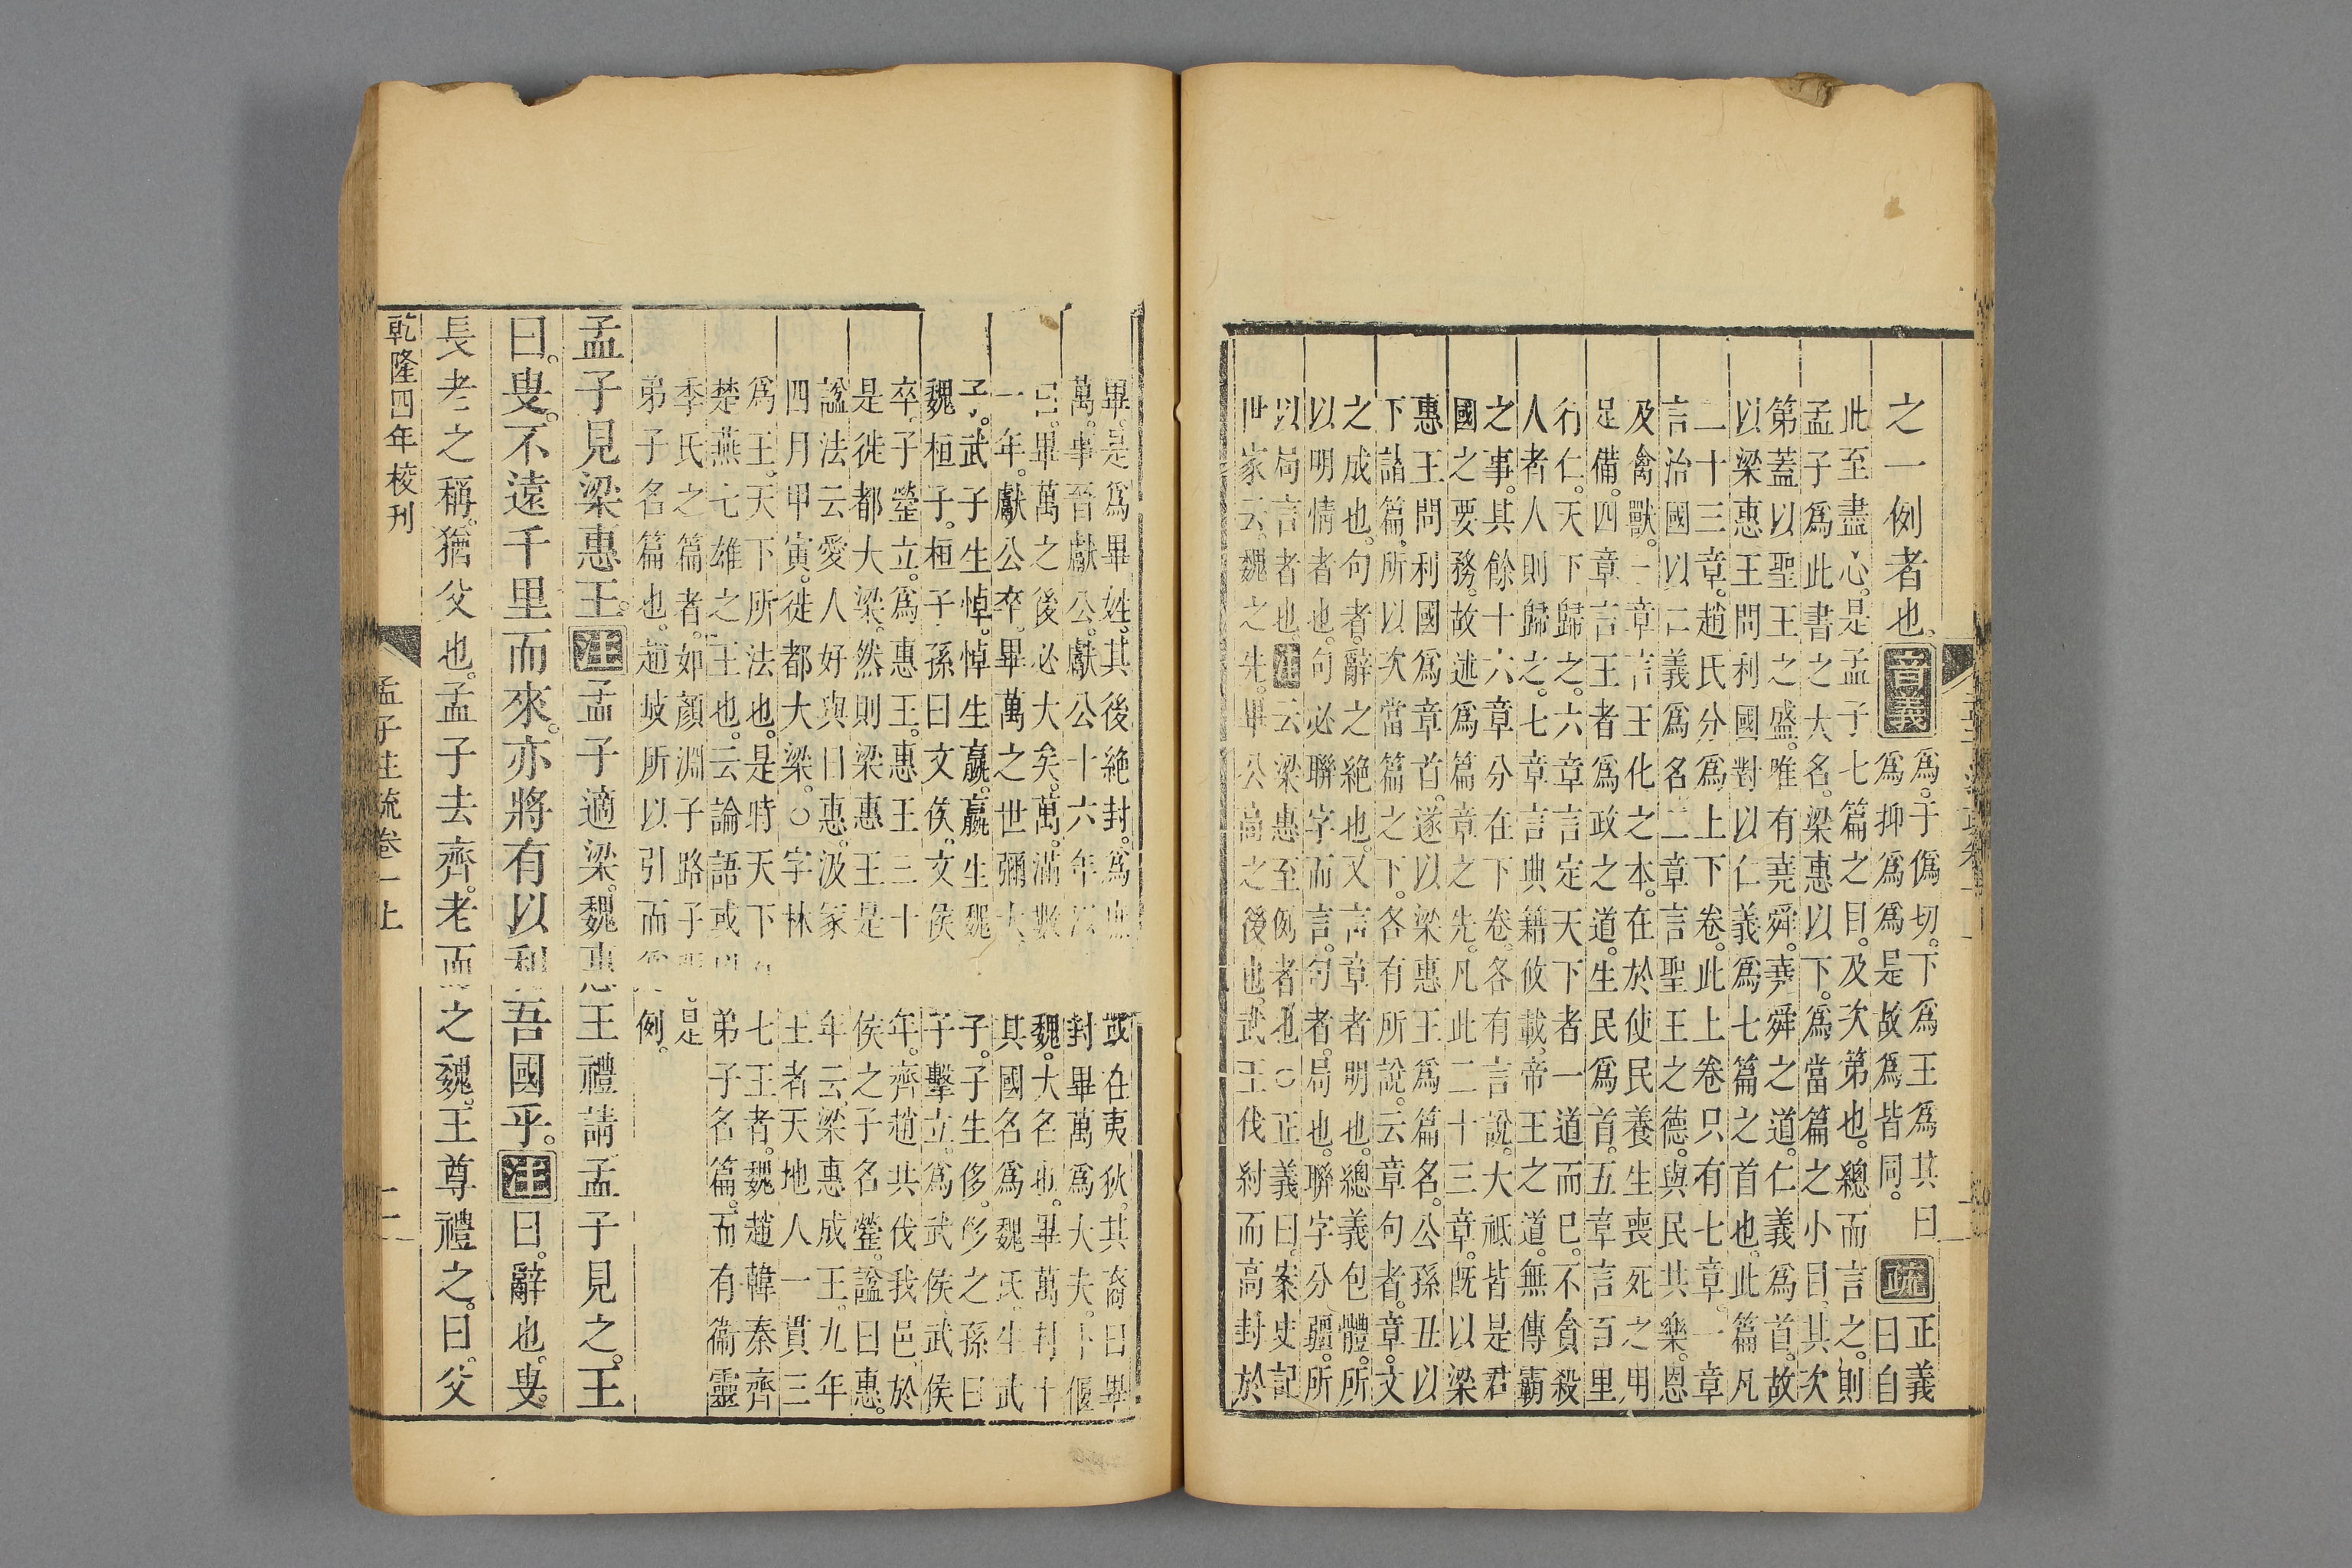 之一例者也。音義爲。于僞切。下爲王爲其曰
爲抑爲爲是故爲皆同。疏正義曰自
此至盡心。是孟子七篇之目。及次第也。總而言之。則
孟子爲此書之大名。梁惠以下。爲當篇之小目。其次
第蓋以聖王之盛。唯有堯舜。堯舜之道。仁義爲首。故
以梁惠王問利國對以仁義爲七篇之首也。此篇凡
二十三章。趙氏分爲上下卷。此上卷只有七章。一章
言治國以仁義爲名。二章言聖王之德。與民共樂。恩
及禽獸。三章言王化之本。在於使民養生喪死之用
足備。四章言王者爲政之道。生民爲首。五章言百里
行仁。天下歸之。六章言定天下者一道而已。不貪殺
人者人則歸之。七章言典籍攸載。帝王之道。無傳霸
之事。其餘十六章分在下卷。各有言說。大祗皆是君
國之要務。故述爲篇章之先。凡此二十三章。既以梁
惠王問利國爲章首。遂以梁惠王爲篇名。公孫丑以
下諸篇。所以次當篇之下。各有所說。云章句者。章。文
之成也。句者。辭之絶也。又言章者明也。總義包體。所
以明情者也。句必聯字而言。句者。局也。聯字分疆。所
以局言者也。注云梁惠至例者也。○正義曰。案史記
世家云。魏之先。畢公高之後也。武王伐紂而高封於
畢。是爲畢姓。其後絶封。爲庶 或在夷狄。其裔曰畢
萬。事晉獻公。獻公十六年 封畢萬爲大夫。卜偃
曰。畢萬之後必大矣。萬。滿數 魏。大名也。畢萬封十
一年。獻公卒。畢萬之世彌大 其國名爲魏氏。生武
子。武子生悼。悼生嬴。嬴生魏 子。子生侈。侈之孫曰
魏桓子。桓子孫曰文侯。文侯 子擊立。爲武侯。武侯
卒。子罃立。爲惠王。惠王三十 年。齊趙共伐我邑。於
是徙都大梁。然則梁惠王是 侯之子名罃。謚曰惠。
謚法云愛人好與曰惠。汲冢 年云。梁惠成王。九年
四月甲寅。徙都大梁。○字林 王者天地人一貫三
爲王。天下所法也。是時天下 七王者。魏趙韓秦齊
楚燕七雄之王也。云論語或 弟子名篇。而有衛靈
季氏之篇者。如顏淵子路子 是
弟子名篇也。趙岐所以引而 例。
孟子見梁惠王。注孟子適梁。魏惠王禮請孟子見之。王
曰。叟。不遠千里而來。亦將有以利吾國乎。注曰。辭也。叟。
長老之稱。猶父也。孟子去齊。老而之魏。王尊禮之。曰。父
乾隆四年校刊 孟子注疏卷一上 二